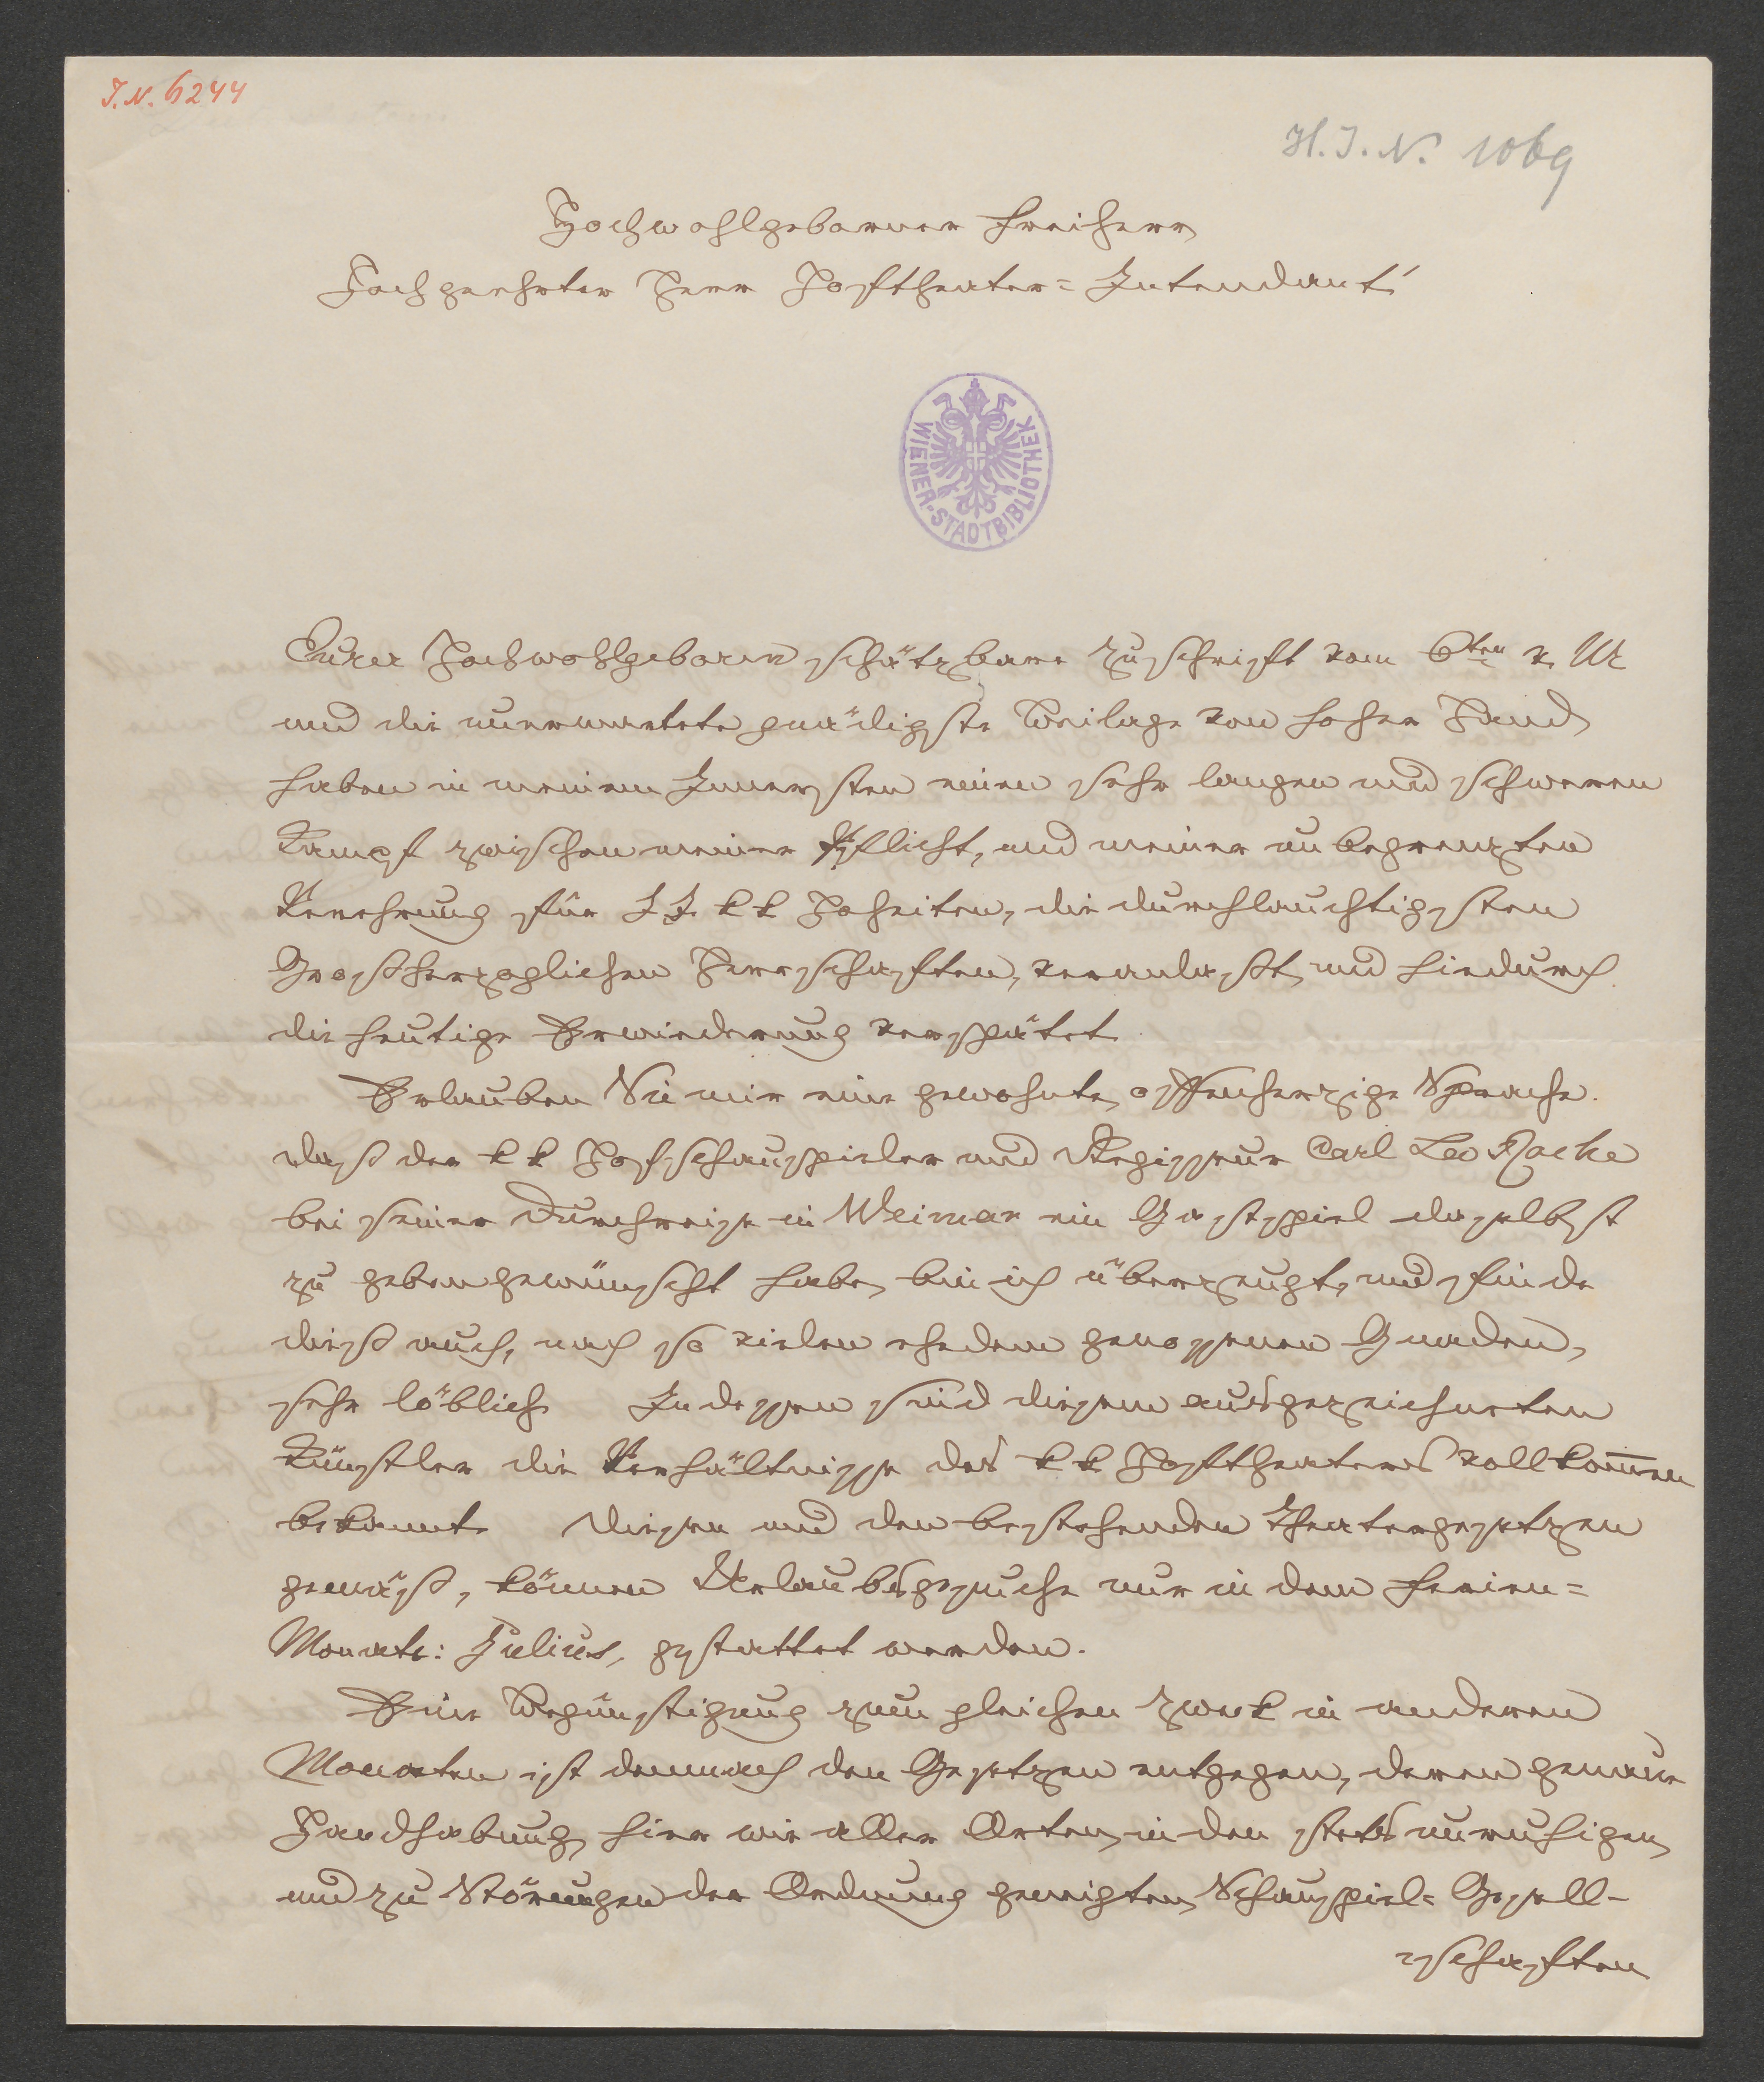 J. N. 6244
H. I. N. 1069
Hochwohlgeborner Freiherr
Hochgeehrter Herr Hoftheater=Intendant!
WIENER-STADTBIBLIOTHEK
Eurer Hochwohlgeboren schätzbare Zuschrift vom 6ten v. M
und die unerwartete gnädigste Beilage von hoher Hand
haben in meinem Innersten einen sehr langen und schweren
Kampf zwischen meiner Pflicht, und meiner unbegrenzten
Verehrung für I I. k k Hoheiten, die durchlauchtigsten
Großherzoglichen Herrschaften, veranlaßt, und hiedurch
die heutige Erwiederung verspätet.
Erlauben Sie mir eine gewohnte, offenherzige Sprache.
daß der k k Hofschauspieler und Regisseur Carl La Roche
bei seiner Durchreise in Weimar ein Gastspiel daselbst
zu geben gewünscht habe, bin ich überzeugt, und finde
dieß auch, nach so vielen ehedem genossenen Gnaden,
sehr löblich. Indessen sind diesem ausgezeichneten
Künstler die Verhältnisse des k k Hoftheaters vollkom̅en
bekannt. Diesen und den bestehenden Theatergesetzen
gemäß, können Urlaubsgesuche nur in dem Ferien=
Monate: Julius, gestattet werden.
Eine Begünstigung zum gleichen Zwek in anderen
Monaten ist demnach den Gesetzen entgegen, deren genaue
Handhabung, hier wie aller Orten, in den stets unruhigen,
und zu Störungen der Ordnung geneigten, Schauspiel=Gesell-
schaften